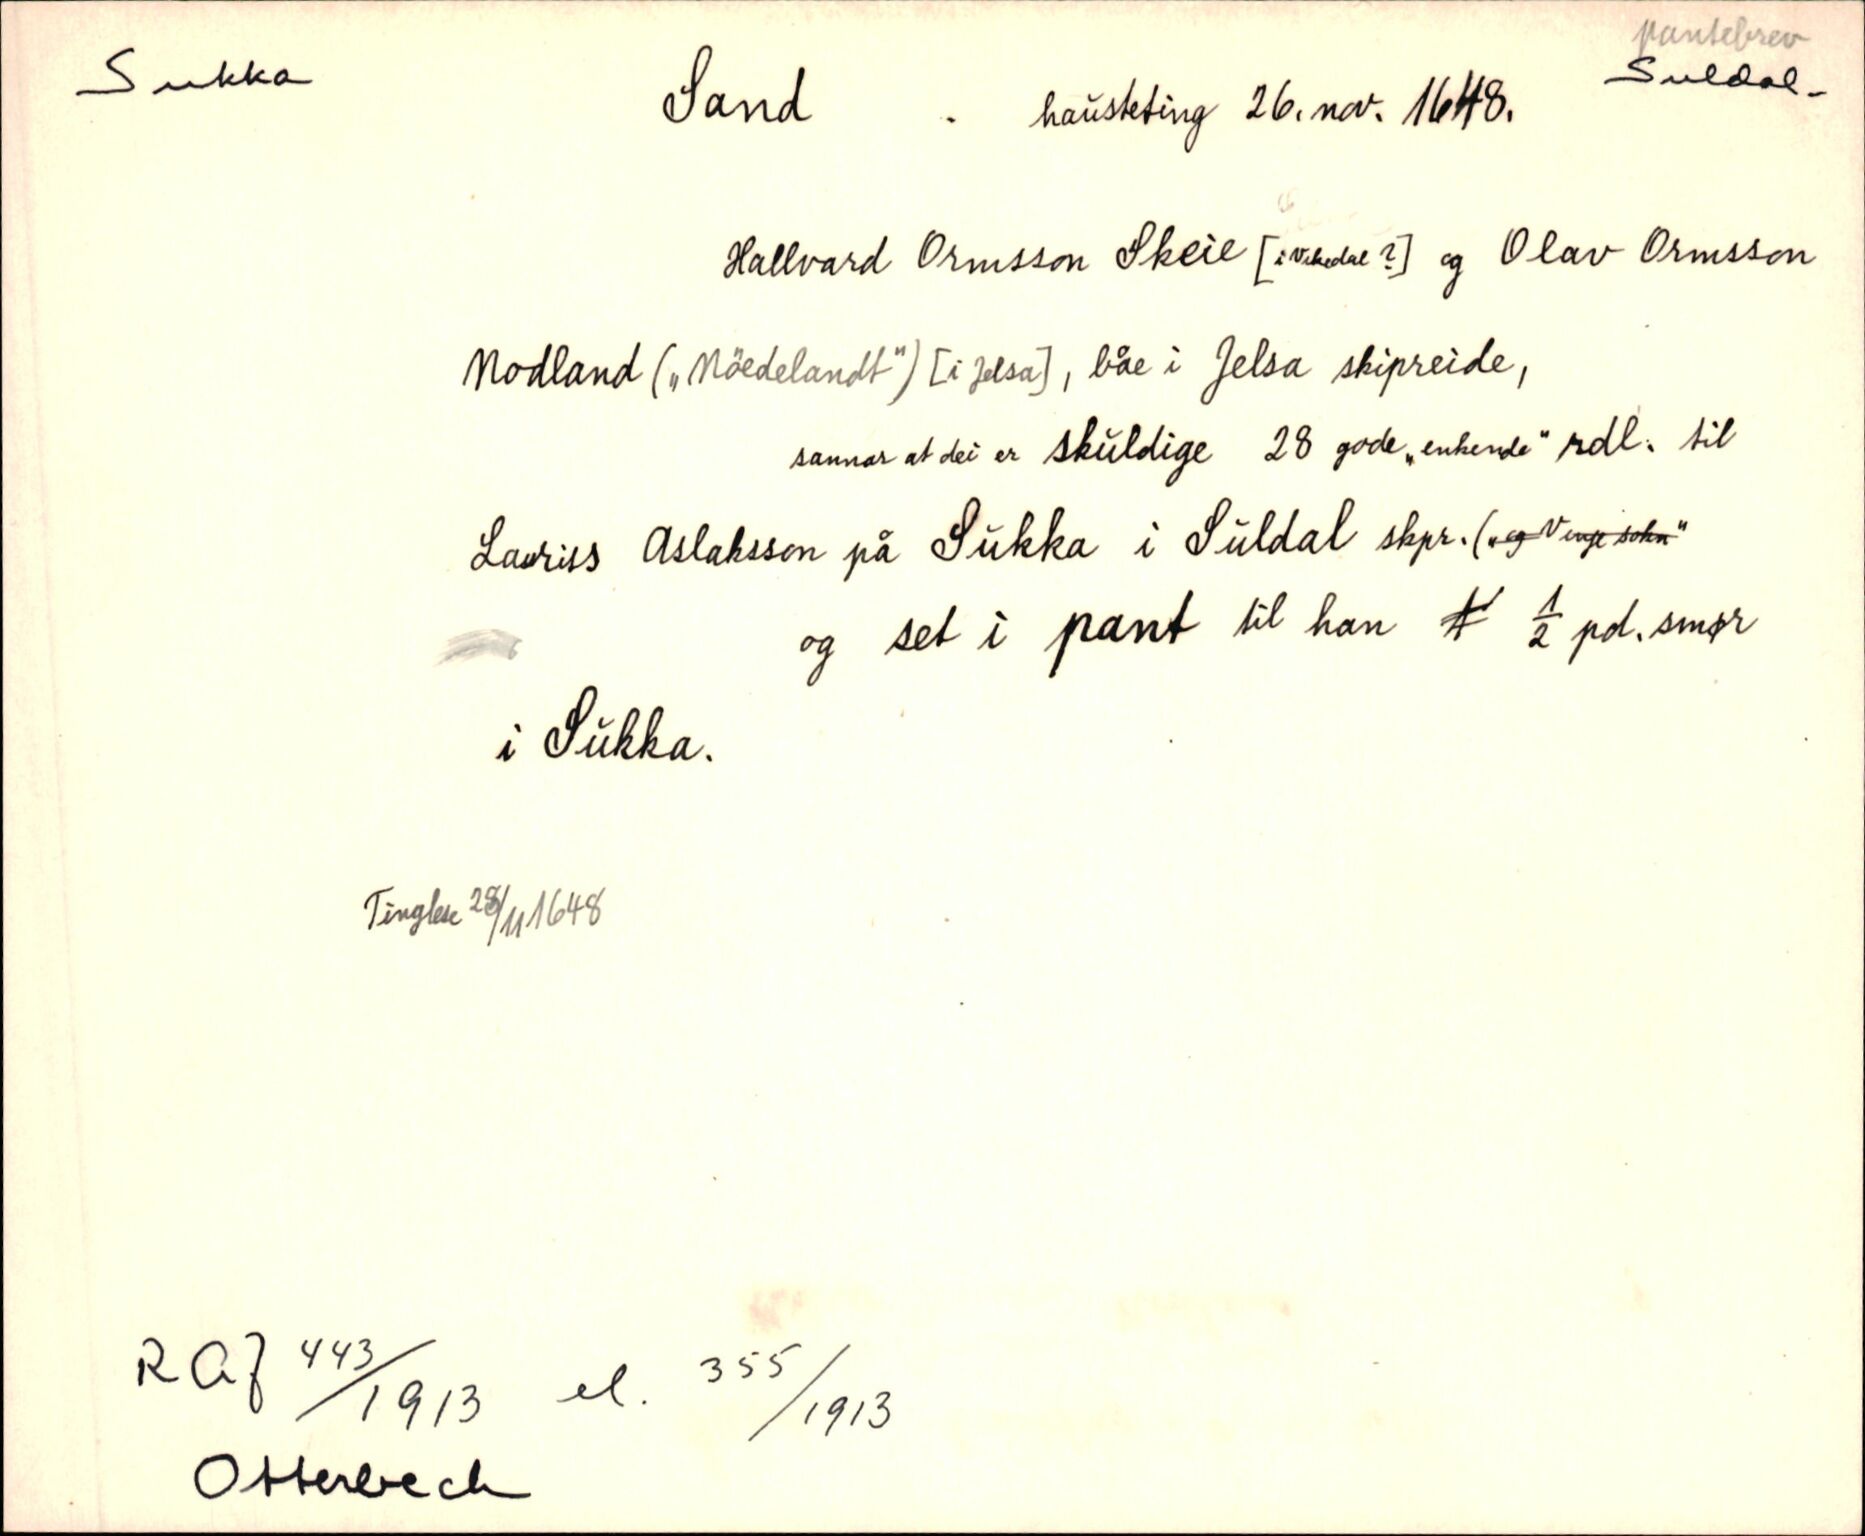 pantebrev
Sukka Sand . haústeting 26. nov. 1648. Suldal-
Hallvard Ormsson Skeie [i Vikedal?] og Olav Ormsson
Modland („Möedelandt") [i Jelsa], båe i Jelsa skipreide,
sannar at dei er skúldige 28 gode „enkende" rdl. til
Lauriss Aslaksson på Súkka i Súldal skpr. („og Vinje sokn"
og set i pant til han ½ pd. smør
i Súkka.
Tinglese 28/11 1648
RAf 443/1913 el. 355/1913
Otterbech